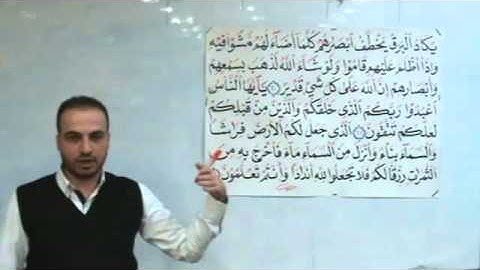 يَكَادُ الْبَرْقُ يَخْطَفُ أَبْصَارَهُمْ كُلَّمَا أَضَاءَ لَهُمْ مَشَوْا فِيهِ
وَإِذَا أَظْلَمَ عَلَيْهِمْ قَامُوا وَلَوْ شَاءَ اللَّهُ لَذَهَبَ بِسَمْعِهِمْ
وَأَبْصَارِهِمْ إِنَّ اللَّهَ عَلَى كُلِّ شَيْءٍ قَدِيرٌ يَاأَيُّهَا النَّاسُ
اعْبُدُوا رَبَّكُمُ الَّذِي خَلَقَكُمْ وَالَّذِينَ مِنْ قَبْلِكُمْ
لَعَلَّكُمْ تَتَّقُونَ الَّذِي جَعَلَ لَكُمُ الْأَرْضَ فِرَاشًا
وَالسَّمَاءَ بِنَاءً وَأَنْزَلَ مِنَ السَّمَاءِ مَاءً فَأَخْرَجَ بِهِ مِنَ
الثَّمَرَاتِ رِزْقًا لَكُمْ فَلَا تَجْعَلُوا لِلَّهِ أَنْدَادًا وَأَنْتُمْ تَعْلَمُونَ